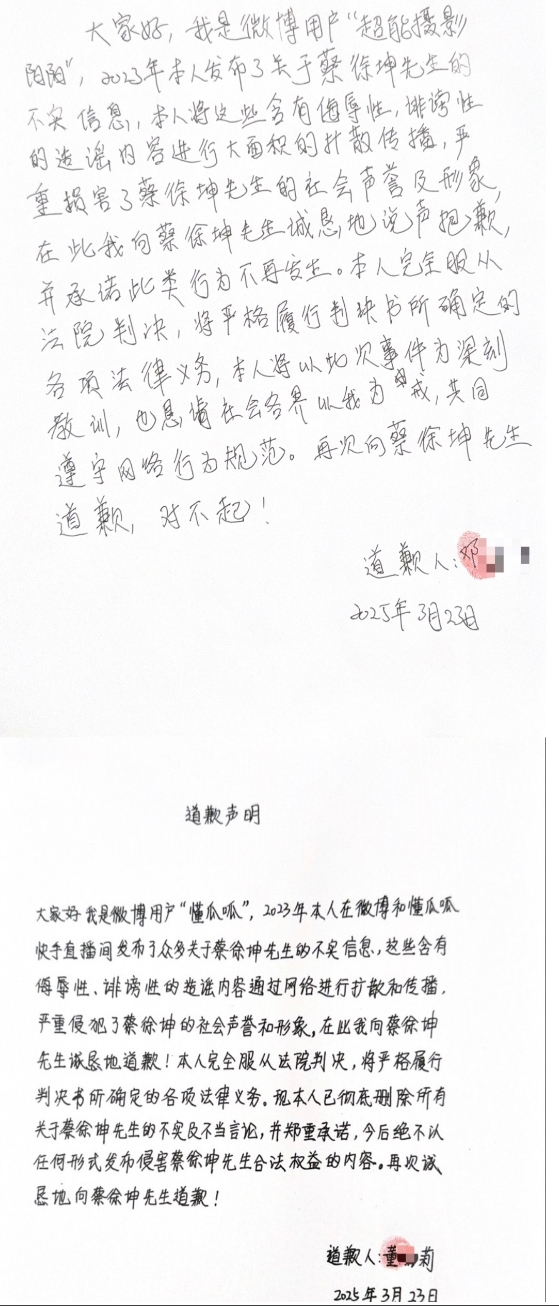 大家好，我是微博用户“超能摄影
阳阳”，2023年本人发布了关于蔡徐坤先生的
不实信息，本人将这些含有侮辱性，诽谤性
的造谣内容进行大面积的扩散传播，严
重损害了蔡徐坤先生的社会声誉及形象，
在此我向蔡徐坤先生诚恳地说声抱歉，
并承诺此类行为不再发生。本人完全服从
法院判决，将严格履行判决书所确定的
各项法律义务，本人将以此次事件为深刻
教训，也恳请社会各界以我为戒，共同
遵守网络行为规范。再次向蔡徐坤先生
道歉，对不起！
道歉人：邓
2025年3月23日
道歉声明
大家好我是微博用户“懂瓜呱”，2023年本人在微博和懂瓜呱
快手直播间发布了众多关于蔡徐坤先生的不实信息，这些含有
侮辱性、诽谤性的造谣内容通过网络进行扩散和传播，
严重侵犯了蔡徐坤的社会声誉和形象，在此我向蔡徐坤
先生诚恳地道歉！本人完全服从法院判决，将严格履行
判决书所确定的各项法律义务。现本人已彻底删除所有
关于蔡徐坤先生的不实及不当言论，并郑重承诺，今后绝不以
任何形式发布侵害蔡徐坤先生合法权益的内容。再次诚
恳地向蔡徐坤先生道歉！
道歉人：董 莉
2025年3月23日